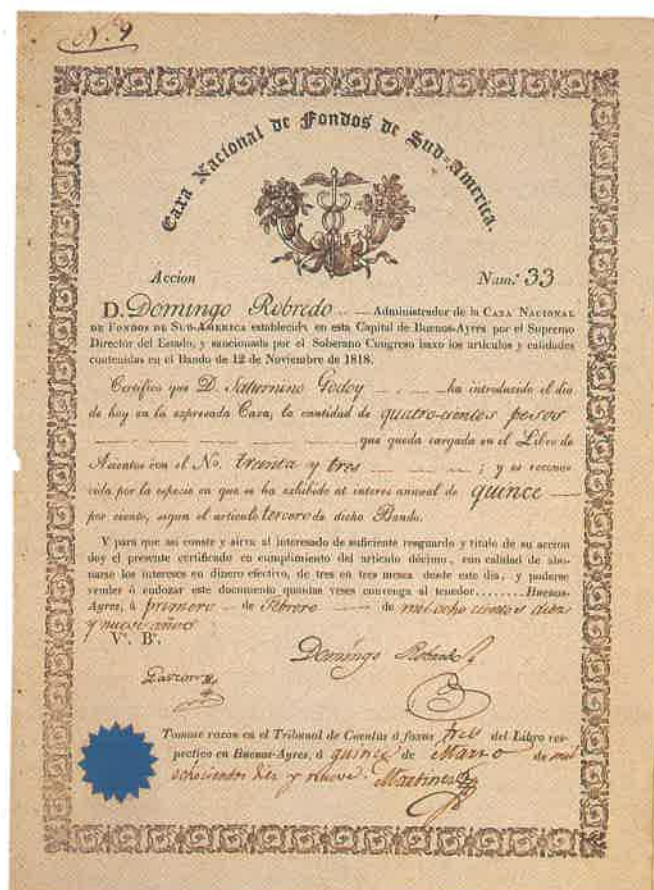 N.º 9
Caxa Nacional de Fondos de Sud-America.
Accion Num.º 33
D. Domingo Robredo Administrador de la CAXA NACIONAL
DE FONDOS DE SUD-AMERICA establecida en esta Capital de Buenos-Ayres por el Supremo
Director del Estado, y sancionada por el Soberano Congreso baxo los articulos y calidades
contenidas en el Bando de 12 de Noviembre de 1818.
Certifico que D. Saturnino Godoy ha introducido el dia
de hoy en la expresada Caxa, la cantidad de quatro-cientos pesos
que queda cargada en el Libro de
Accentos con el No. trenta y tres ; y es recono
cida por la especie en que se ha exhibido al interes annual de quince
por ciento, segun el articulo tercero de dicho Bando.
Y para que asi conste y sirva al interesado de suficiente resguardo y titulo de su accion
doy el presente certificado en cumplimiento del articulo décimo, con calidad de abo-
narse los intereses en dinero efectivo, de tres en tres meses desde este dia, y poderse
vender ó endozar este documento quantas veses convenga al tenedor........Buenos-
Ayres, á primero de Febrero de mil ocho cientos diez
y nueve años
V.º B.º
Domingo Robredo
Tomose razon en el Tribunal de Cuentas á foxas tres del Libro res-
pectivo en Buenos-Ayres, á quince de Marzo de mil
ochocientos diez y nueve Martinez